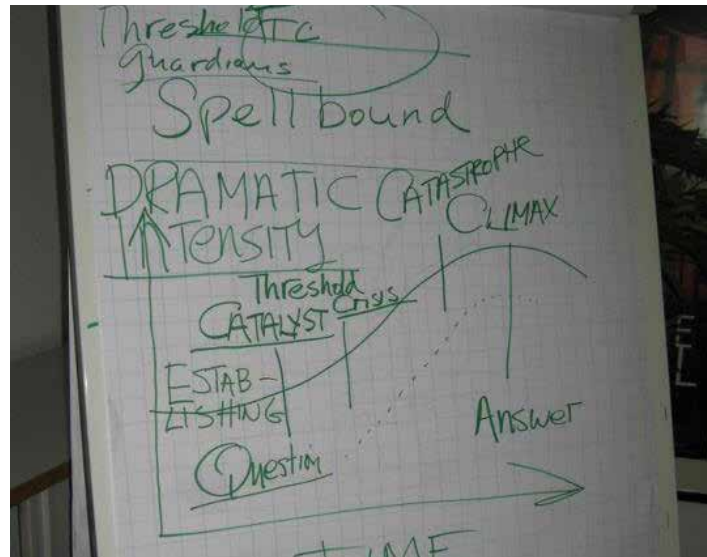 Threshold
guardians
Spellbound
DRAMATIC
INTENSITY
CATASTROPHE
CLIMAX
Threshold
Crisis
CATALYST
ESTAB-
LISHING
Question
Answer
TIME